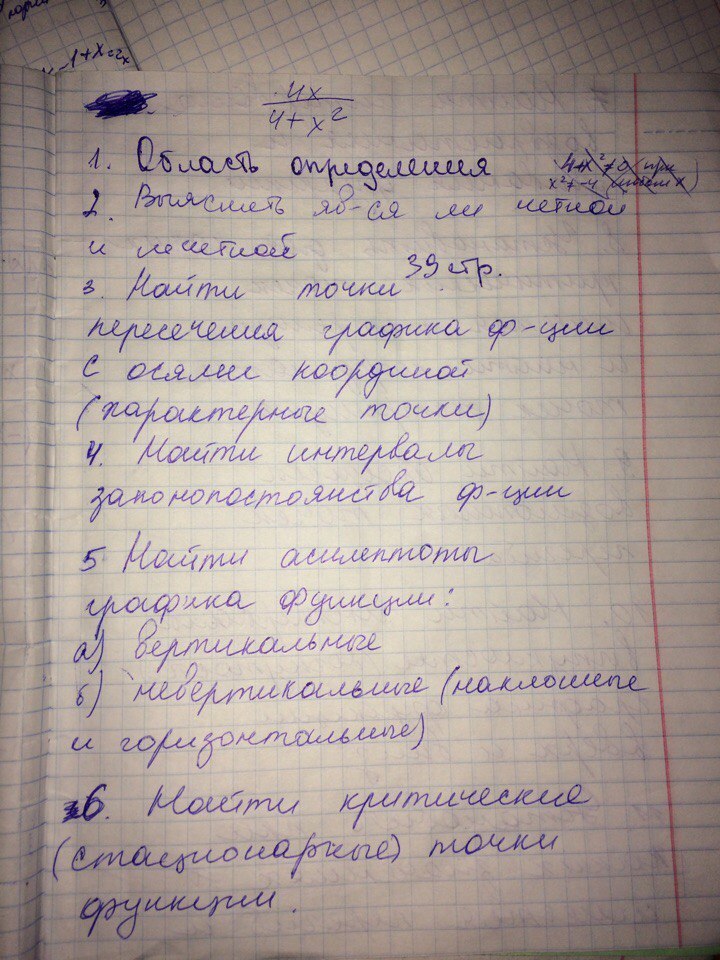 -1+x=2x
4x
4+x²
1. Область определения
4+x²≠0 при
x²≠-4 (любом x)
2. Выяснить яв-ся ли четной
и нечетной
39 стр.
3. Найти точки
пересечения графика ф-ции
с осями координат
(характерные точки)
4. Найти интервалы
законопостоянства ф-ции
5 Найти асимптоты
графика функции:
а) вертикальные
б) невертикальные (наклонные
и горизонтальные)
6. Найти критические
(стационарные) точки
функции.